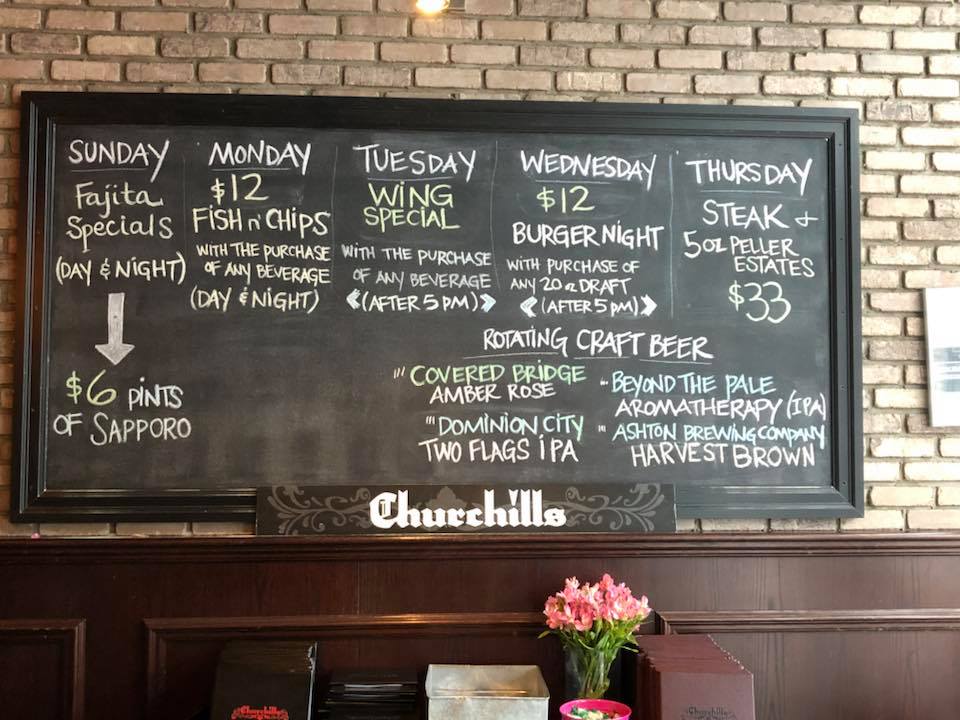 SUNDAY
Fajita
Specials
(DAY & NIGHT)
$6 PINTS
OF SAPPORO
MONDAY
$12
FISH n' CHIPS
WITH THE PURCHASE
OF ANY BEVERAGE
(DAY & NIGHT)
TUESDAY
WING
SPECIAL
WITH THE PURCHASE
OF ANY BEVERAGE
(AFTER 5 PM)
WEDNESDAY
$12
BURGER NIGHT
WITH PURCHASE OF
ANY 20 oz DRAFT
(AFTER 5 PM)
THURSDAY
STEAK +
5 oz PELLER
ESTATES
$33
ROTATING CRAFT BEER
COVERED BRIDGE
AMBER ROSE
DOMINION CITY
TWO FLAGS IPA
BEYOND THE PALE
AROMATHERAPY (IPA)
ASHTON BREWING COMPANY
HARVEST BROWN
Churchills
Churchills
Churchills